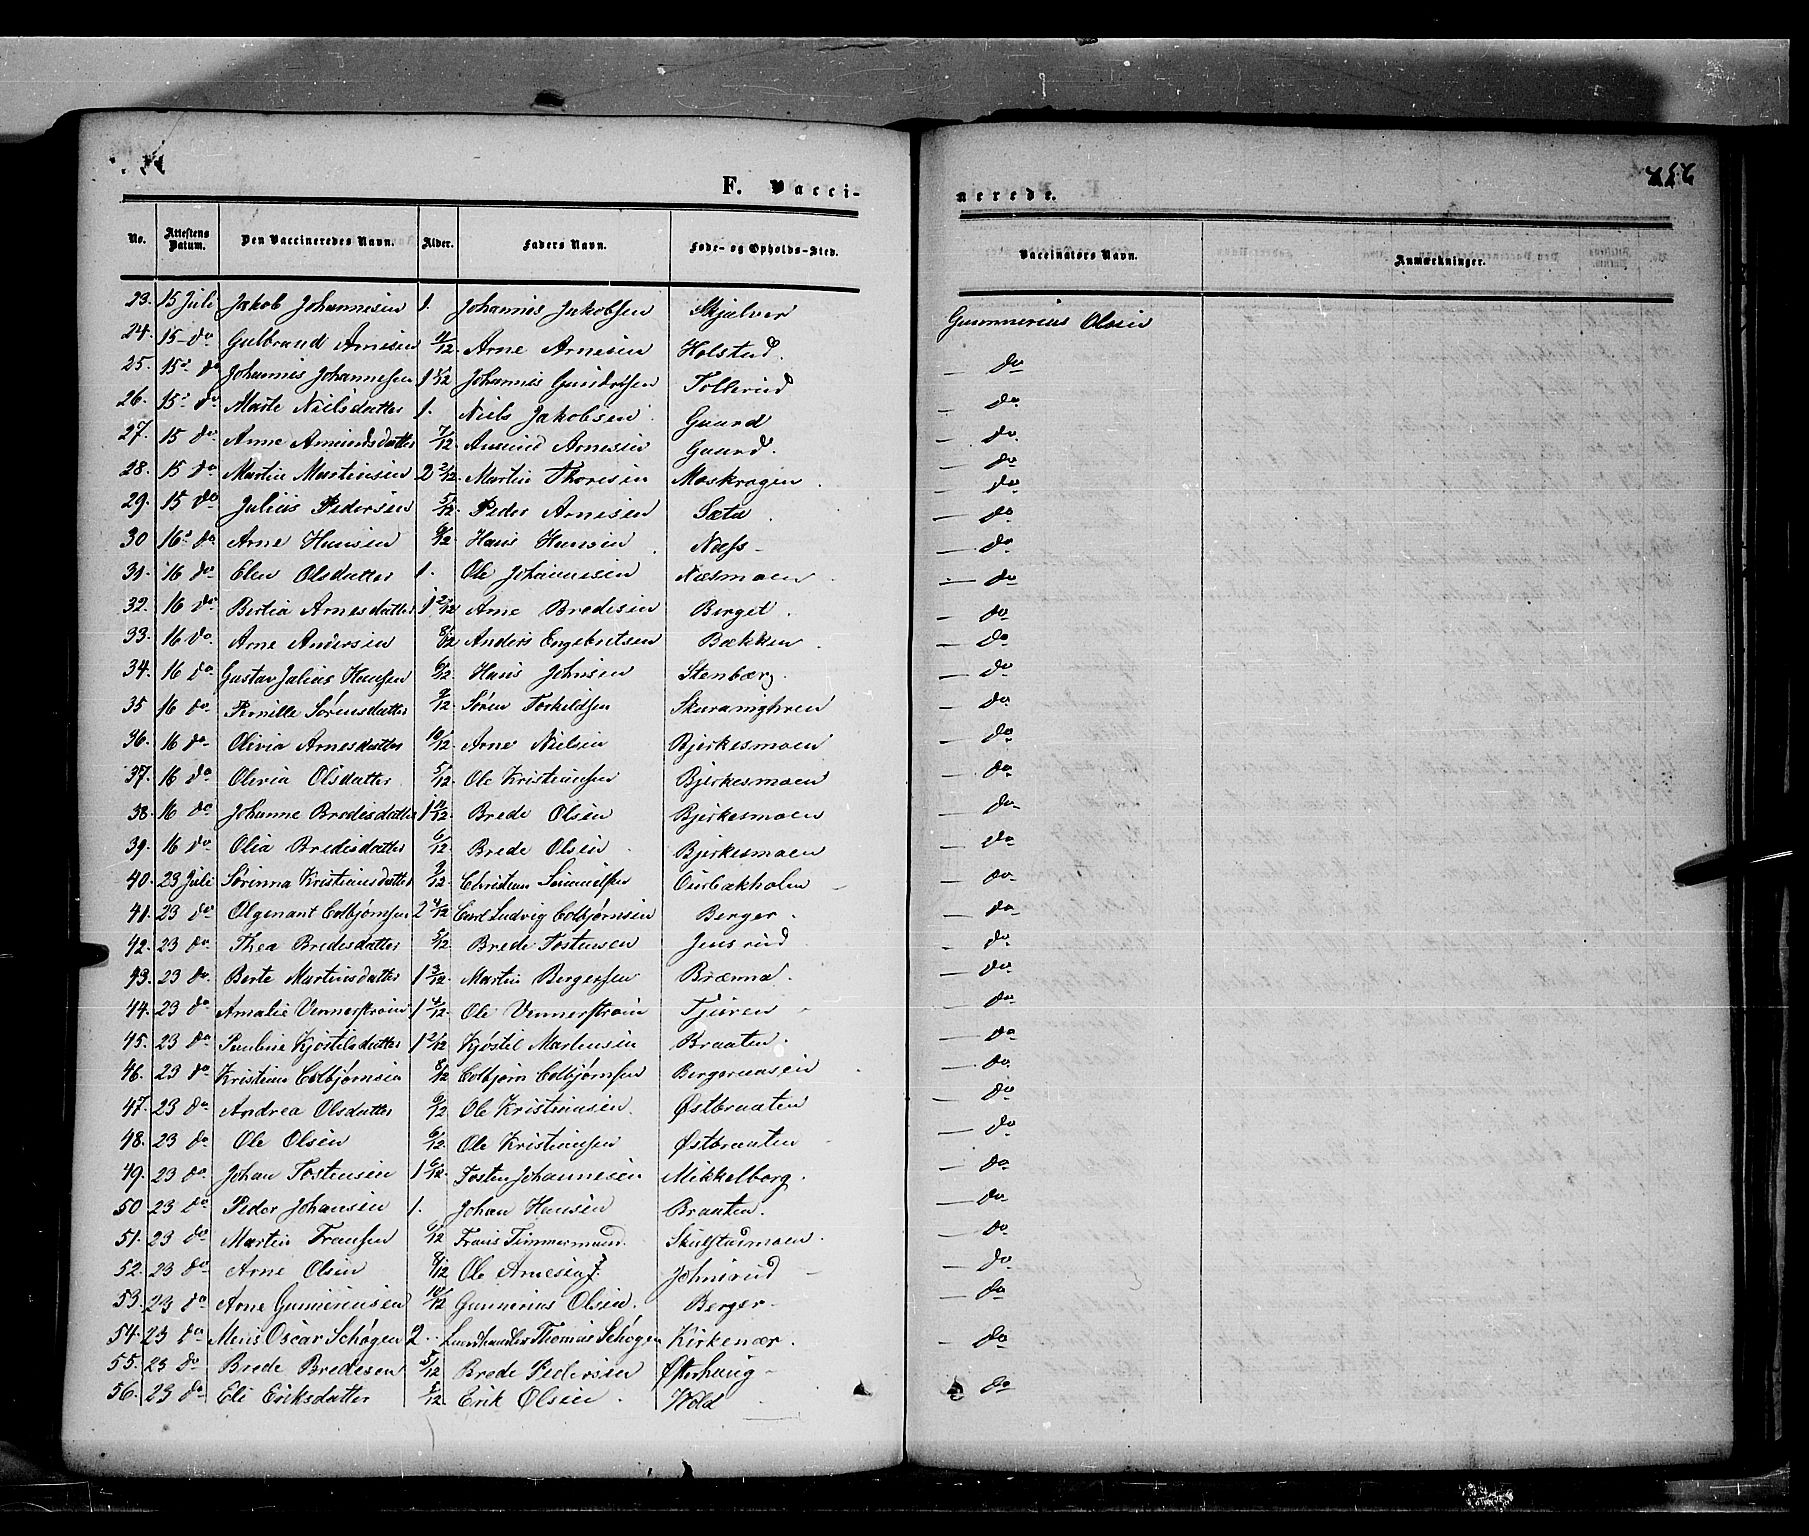 F. Vacci-
nerede.
No. Attestens Datum. Den Vaccineredes Navn. Alder. Faders Navn. Føde- og Opholds-Sted. Vaccinatørs Navn. Anmærkninger.
23. 15 Juli Jakob Johannesen 1. Johannes Jakobsen Skjælver Gunnnerius Olsen
24. 15 do Gulbrand Arnesen /12 Arne Arnesen Holstad. do
25. 15 do Johannes Johannesen 1 /12 Johannes Gundersen Tollerud do
26. 15 do Marte Nielsdatter 1. Niels Jakobsen Gaard do
27. 15 do Anne Amundsdatter 7/12 Amund Arnesen Gaard. do
28. 15 do Martin Martinsen 2 2/12 Martin Thoresen Moskrogen do
29. 15 do Julius Pedersen 5/12 Peder Arnesen Sæta do
30 16 do Arne Hansen 6/12 Hans Hansen Næss do
31. 16 do Elen Olsdatter 1. Ole Johannesen Næsmoen do
32. 16 do Bertea Arnesdatter 1 2/12 Arne Bredesen Berget. do
33. 16 do Arne Andersen 8/12 Anders Engebretsen Bækken do
34. 16 do Gustav Julius Hansen 6/12 Hans Johnsen Stenbærg. do
35 16 do Pernille Sørensdatter 9/12 Søren Torkildsen do
36. 16 do Olivia Arnesdatter 10/12 Arne Nielsen Bjerkesmoen do
37. 16 do Olivia Olsdatter 5/12 Ole Kristiansen Bjerkesmoen do
38. 16 do Johanne Bredesdatter 1 10/12 Brede Olsen Bjerkesmoen do
39. 16 do Olia Bredesdatter 6/12 Brede Olsen Bjerkesmoen do
40. 23 Juli Sørinna Kristiansdatter 9/12 Christian do
41. 23 do Olgenant Colbjørnsen 2 4/12 Carl Ludvig Colbjørnsen Berger. do
42. 23 do Thea Bredesdatter 5/12 Brede Tostensen Jensrud do
43. 23 do Berte Martinsdatter 1 3/12 Martin Bergersen Brænna do
44. 23 do Amalie Vennerstrøm 1 4/12 Ole Vennerstrøm Tjuren do
45. 23 do Pauline Kjøstilsdatter 1 2/12 Kjøstil Martensen Braaten. do
46. 23 do Kristian Colbjørnsen 8/12 Colbjørn Colbjørnsen do
47. 23 do Andrea Olsdatter 6/12 Ole Kristiansen. Østbraaten do
48. 23 do Ole Olsen 6/12 Ole Kristiansen Østbraaten do
49. 23 do Johan Tostensen 1 6/12 Tosten Johannesen Mikkelborg. do
50 23 do Peder Johansen 1. Johan Hansen Braaten. do
51. 23 do Martin Fransen 6/12 Frans Timmermand. Skulstadmoen. do
52. 23 do Arne Olsen 8/12 Ole Arnesen Johnsrud do
53. 23 do Arne Gunneriusen 10/12 Gunnerius Olsen. Berger. do
54. 23 do Mens Oscar Schøgen 2 Landhandler Thomas Schøgen Kirkenær. do
55. 23 do Brede Bredesen 5/12 Brede Pedersen Østerhaug
56. 23 do Eli Eriksdatter 5/12 Erik Olsen. Vold do